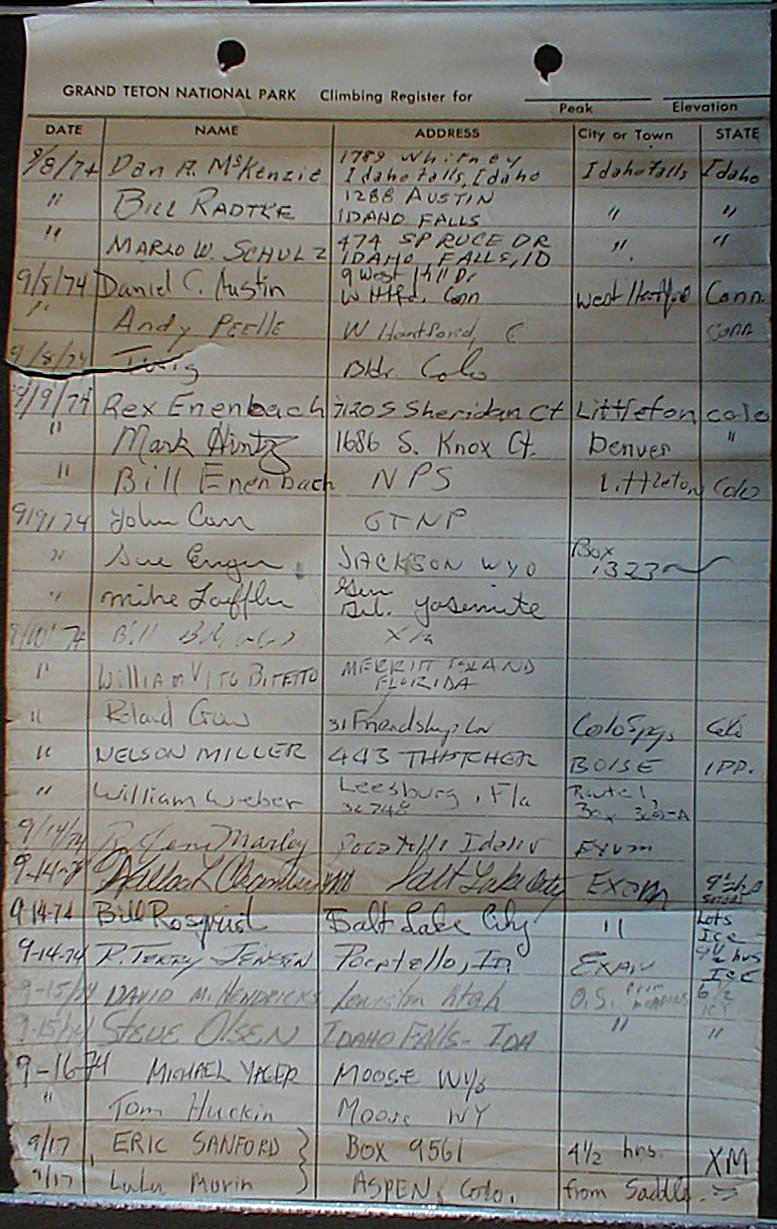 GRAND TETON NATIONAL PARK Climbing Register for
Peak Elevation
DATE NAME ADDRESS City or Town STATE
9/8/74 Dan R. McKenzie 1789 Whitney Idaho Falls, Idaho Idaho Falls Idaho
" BILL RADTKE 1288 AUSTIN IDAHO FALLS " "
" MARIO W. SCHULZ 474 SPRUCE DR IDAHO FALLS, ID " "
9/8/74 Daniel C. Austin 9 West Hill Dr W Htfd. Conn West Hartford Conn
" Andy PEELLE W Hartford, C Conn
9/8/74 Twig Bldr. Colo
9/9/74 Rex Enenbach 7120 S Sheridan Ct Littleton Colo
" Mark Hintz 1686 S. Knox Ct. Denver "
" Bill Enenbach NPS Littleton Colo
9/9/74 John Carr GTNP
" Sue Enger JACKSON WYO Box 1323
" Mike Loeffler Gen Del. Yosemite
9/10/74 Bill
" William VITO BITETTO MERRITT ISLAND FLORIDA
" Roland 31 Friendship Ln Colo Spgs Colo
" NELSON MILLER 443 THATCHER BOISE IDA.
" William Weber Leesburg, Fla 32748 Route 1, Box
9/14/74 Marley Pocatello Idaho Exum
9-14-74 Chambers MD Salt Lake City EXUM 9 1/2 hrs
9-14-74 Bill Rosqvist Salt Lake City " Lots Ice
9-14-74 R. TERRY JENSEN Pocatello, Id EXUM 9 1/2 hrs ICE
9-15/74 DAVID M. HENDRICKS Utah O.S. from
9-15/74 STEVE OLSEN IDAHO FALLS - IDA " "
9-16-74 MICHAEL YAGER MOOSE WYO
" Tom Huckin Moose WY
9/17 ERIC SANFORD } BOX 9561 4 1/2 hrs. XM
9/17 LuLu Morin } ASPEN, Colo. from Saddle.